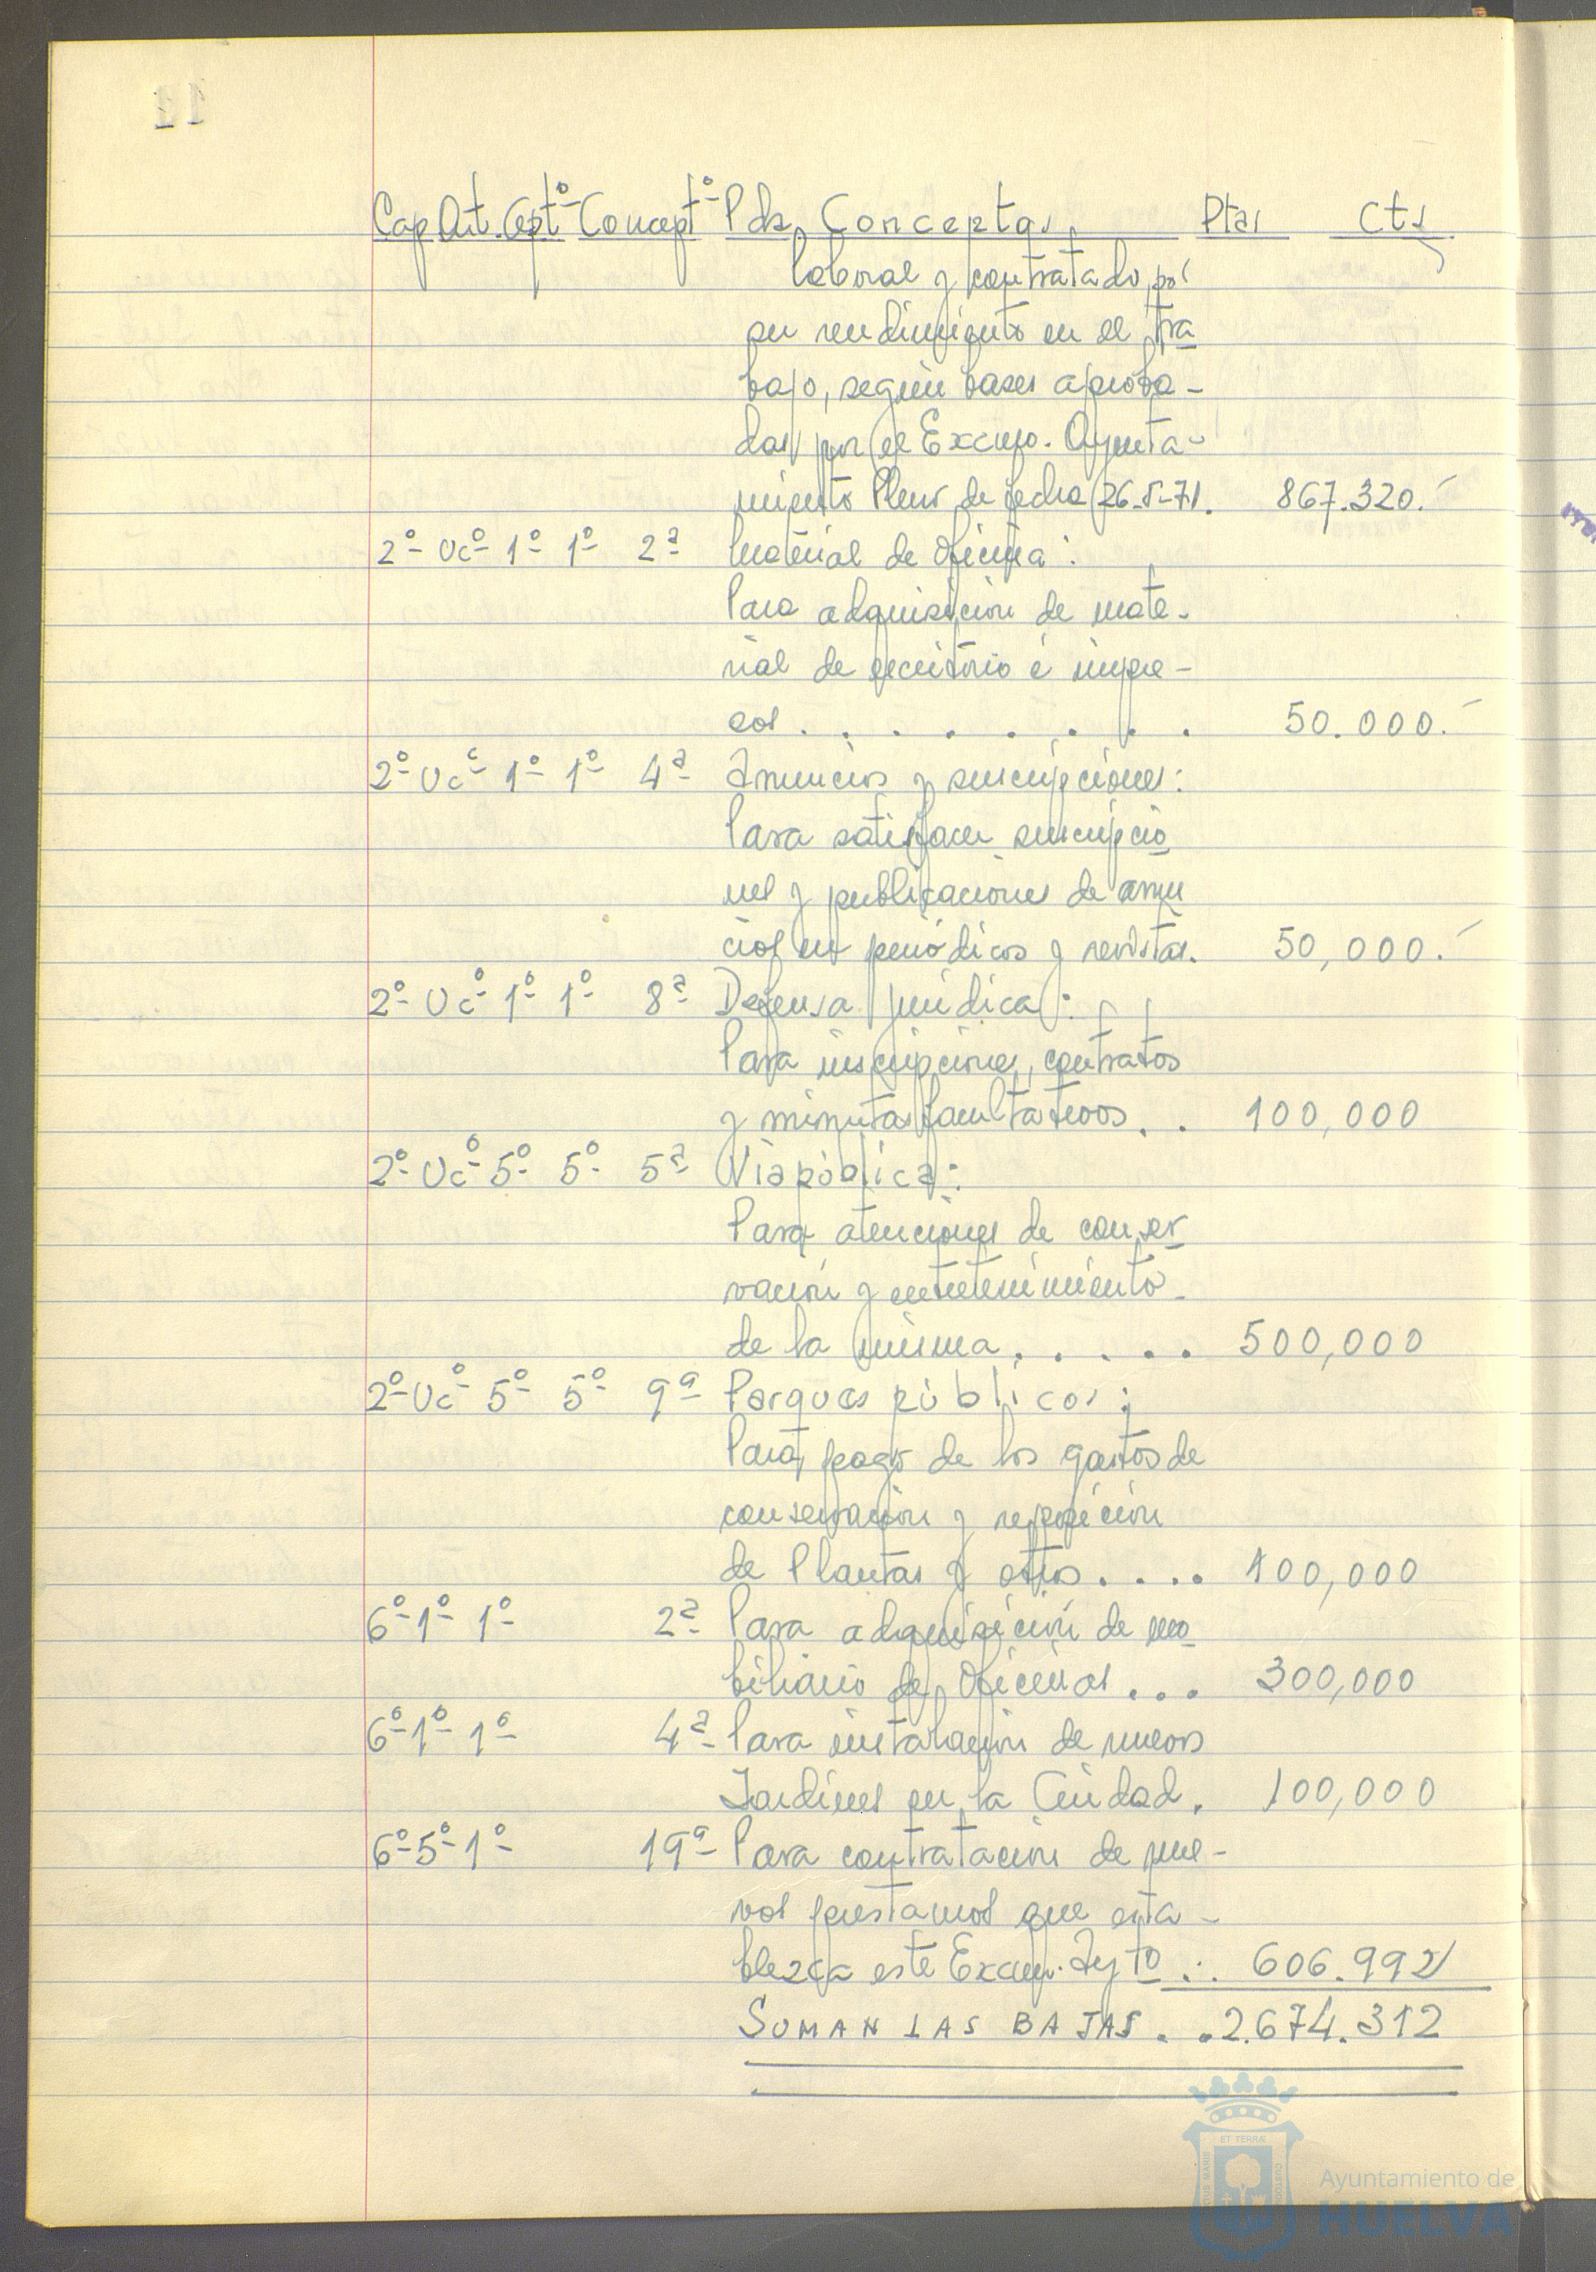 11
Cap Art. Cpt.º Concept.º Pda Conceptos, Ptas Cts
laboral y contratado, por
su rendimiento en el tra
bajo, según bases aproba-
das por el Excmo. Ayunta-
miento Pleno de fecha 26-5-71. 867.320.-
2º Uc.º 1º 1º 2ª Material de Oficina:
Para adquisición de mate-
rial de escritorio é impre-
sos . . . . . . . . 50.000.-
2º Uc.º 1º 1º 4ª Anuncios y suscripciones:
Para satisfacer suscripcio
nes y publicaciones de anun
cios en periódicos y revistas. 50,000.-
2º Uc.º 1º 1º 8ª Defensa jurídica:
Para inscripciones, contratos
y minutas facultativos. . 100,000
2º Uc.º 5º 5º 5ª Vía pública:
Para atenciones de conser
vación y entretenimiento
de la misma. . . . . 500,000
2º Uc.º 5º 5º 9ª Parques públicos:
Para pago de los gastos de
conservación y reposición
de Plantas y otros. . . . 100,000
6º 1º 1º 2ª Para adquisición de mo
biliario de Oficinas . . . 300,000
6º 1º 1º 4ª Para instalación de nuevos
Jardines en la Ciudad. 100,000
6º 5º 1º 19ª Para contratación de nue-
vos prestamos que esta-
blezca este Excmo. Aytº . . 606.992
SUMAN LAS BAJAS. . 2.674.312
ET TERRÆ
Ayuntamiento de
HUELVA